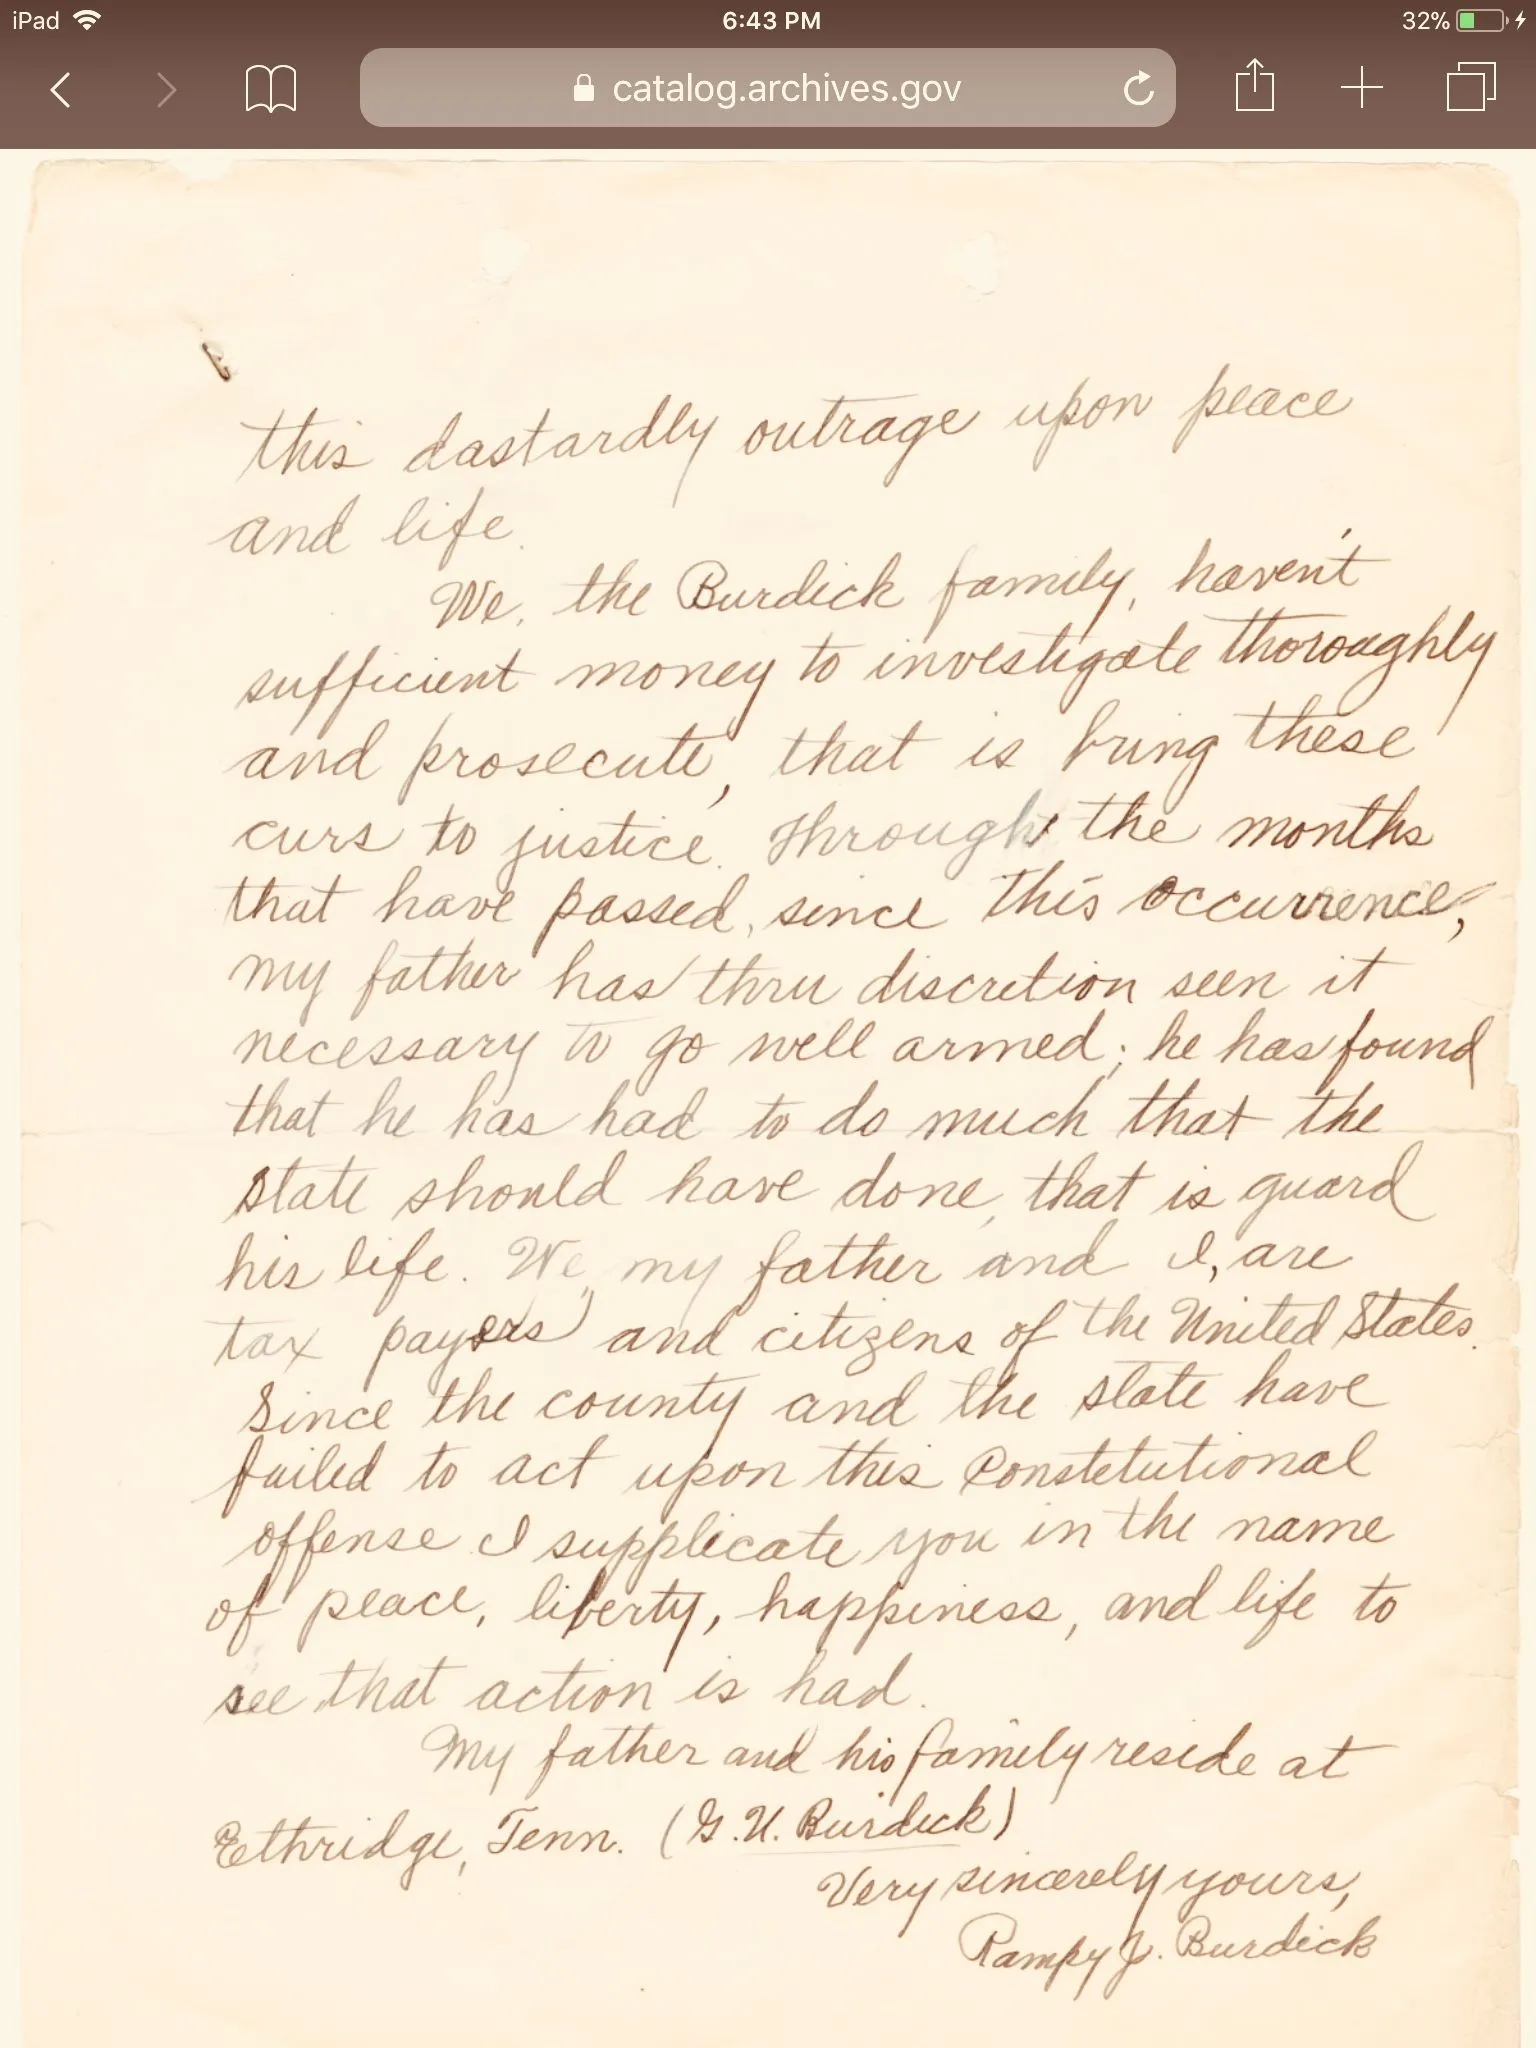 iPad
6:43 PM
32%
catalog.archives.gov
this dastardly outrage upon peace
and life.
We, the Burdick family, haven't
sufficient money to investigate thoroughly
and prosecute, that is bring these
curs to justice. Through the months
that have passed, since this occurrence,
my father has thru discretion seen it
necessary to go well armed; he has found
that he has had to do much that the
state should have done, that is guard
his life. We, my father and I, are
tax payers and citizens of the United States.
Since the county and the state have
failed to act upon this Constetutional
offense I supplicate you in the name
of peace, liberty, happiness, and life to
see that action is had.
My father and his family reside at
Ethridge, Tenn. (G. U. Burdick)
Very sincerely yours,
Rampy J. Burdick